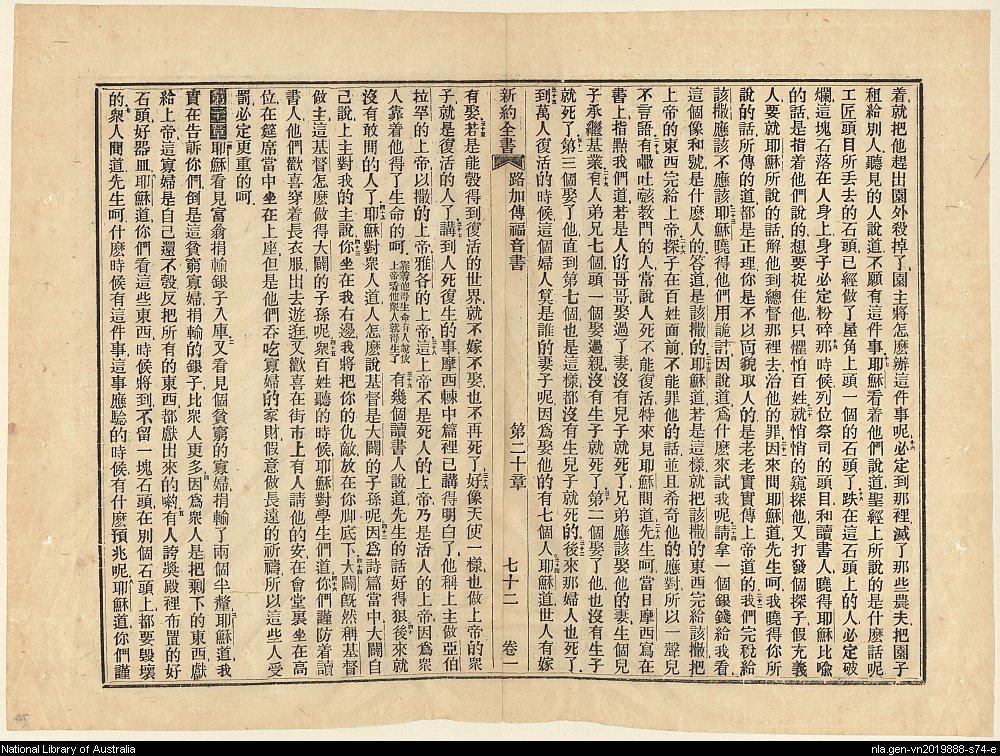 着就把他趕出園外殺掉了園主將怎麽辦這件事呢必定到那裡滅了那些農夫把園子
租給別人聽見的人說道不願有這件事耶穌看着他們說道聖經上所說的是什麽話呢
工匠頭目所丟去的石頭已經做了屋角上頭一個的石頭了跌在這石頭上的人必定破
爛這塊石落在人身上身子必定粉碎那時候列位祭司的頭目和讀書人曉得耶穌比喻
的話是指着他們說的想要捉住他只懼怕百姓就悄悄的窺探他又打發個探子假充義
人要就耶穌所說的話解他到總督那裡去治他的罪因來問耶穌道先生呵我曉得你所
說的話所傳的道都是正理你是不以面貌取人的是老老實實傳上帝道的我們完稅給
該撒應該不應該耶穌曉得他們用詭計因說道爲什麽來試我呢請拿一個銀錢給我看
這個像和號是什麽人的答道是該撒的耶穌道若是這樣就把該撒的東西完給該撒把
上帝的東西完給上帝探子在百姓面前不能罪他的話並且希奇他的應對所以一聲兒
不言語有𠼻吐該教門的人常說人死不能復活特來見耶穌問道先生呵當日摩西寫在
書上指點我們道若是人的哥哥娶過了妻沒有兒子就死了兄弟應該娶他的妻生個兒
子承繼基業有人弟兄七個頭一個娶過親沒有生子就死了第二個娶了他也沒有生子
就死了第三個娶了他直到第七個也是這樣都沒有生兒子就死的後來那婦人也死了
到萬人復活的時候這個婦人算是誰的妻子呢因爲娶他的有七個人耶穌道世人有嫁
新約全書 路加傳福音書 第二十章 七十二 卷一
有娶若是能彀得到復活的世界就不嫁不娶也不再死了好像天使一樣也做上帝的衆
子就是復活的人了講到人死復生的事摩西棘中篇裡已講得明白了他稱上主做亞伯
拉罕的上帝以撒的上帝雅各的上帝這上帝不是死人的上帝乃是活人的上帝因爲衆
人靠着他得了生命的呵 有幾個讀書人說道先生的話好得狠後來就
沒有敢問的人了耶穌對衆人道人怎麽說基督是大闢的子孫呢因爲詩篇當中大闢自
己說上主對我的主說你坐在我右邊我將把你的仇敵放在你脚底下大闢既然稱基督
做主這基督怎麽做得大闢的子孫呢衆百姓聽的時候耶穌對學生們道你們謹防着讀
書人他們歡喜穿着長衣服出去遊逛又歡喜在街市上有人請他的安在會堂裏坐在高
位在筵席當中坐在上座但是他們吞吃寡婦的家財假意做長遠的祈禱所以這些人受
罰必定更重的呵
第二十一章耶穌看見富翁捐輸銀子入庫又看見個貧窮的寡婦捐輸了兩個半釐耶穌道我
實在告訴你們倒是這貧窮寡婦捐輸的銀子比衆人更多因爲衆人是把剩下的東西獻
給上帝這寡婦是自己還不彀反把所有的東西都獻出來的喲有人誇獎殿裡布置的好
石頭好器皿耶穌道你們看這些東西時候將到不留一塊石頭在別個石頭上都要毀壞
的衆人問道先生呵什麽時候有這件事這事應騐的時候有什麽預兆呢耶穌道你們謹
National Library of Australia
nla.gen-vn2019888-s74-e